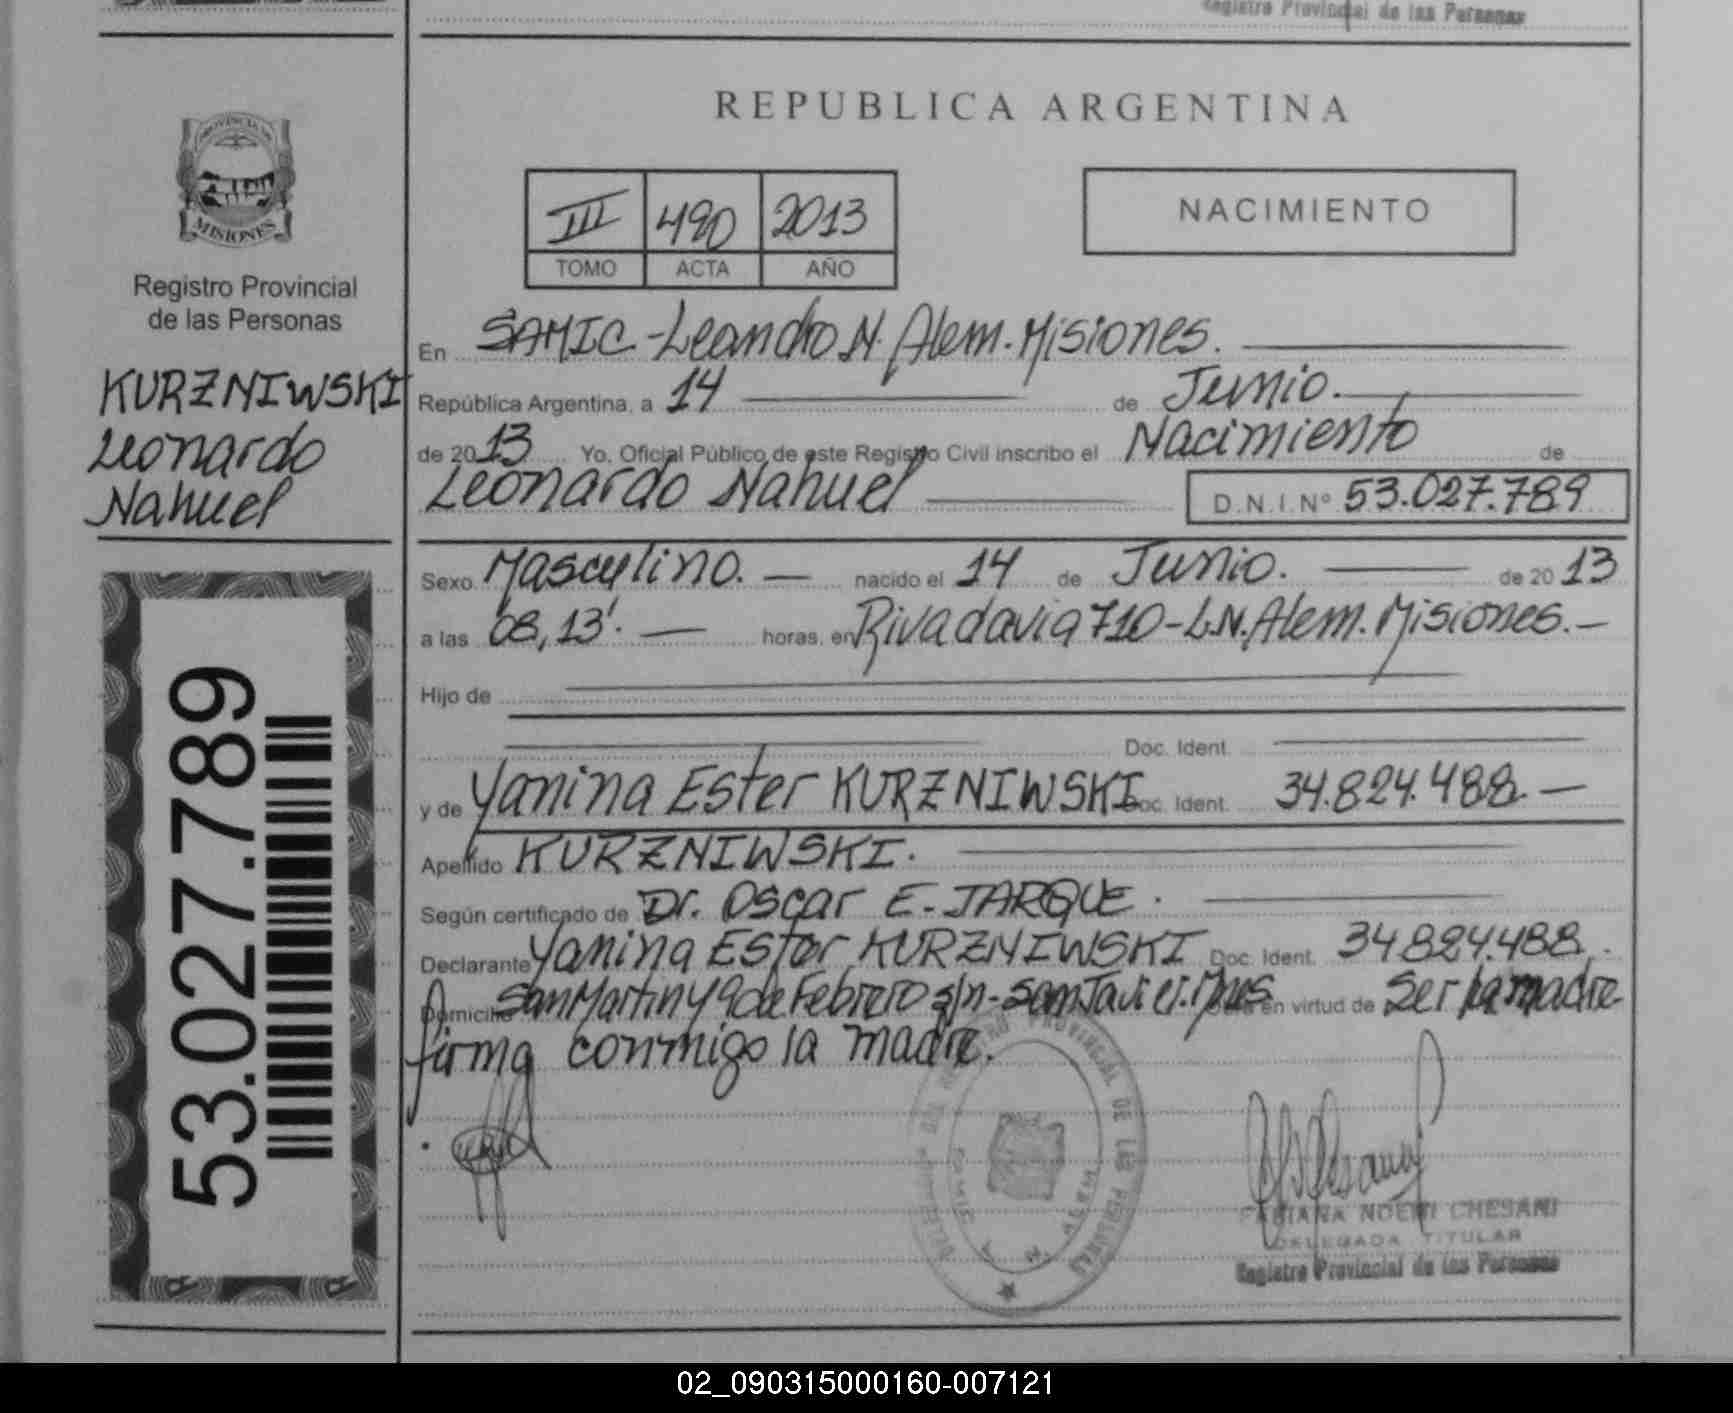 Registro Provincial de las Personas
PROVINCIA DE
MISIONES
Registro Provincial
de las Personas
KURZNIWSKI
Leonardo
Nahuel
53.027.789
REPUBLICA ARGENTINA
III 490 2013
TOMO ACTA AÑO
NACIMIENTO
En SAMIC - Leandro N. Alem. Misiones.
República Argentina, a 14 de Junio.
de 2013 Yo, Oficial Público de este Registro Civil inscribo el Nacimiento de
Leonardo Nahuel D.N.I. Nº 53.027.789
Sexo Masculino. nacido el 14 de Junio. de 2013
a las 08,13'. horas, en Rivadavia 710 - L.N. Alem. Misiones.
Hijo de
Doc. Ident.
y de Yanina Ester KURZNIWSKI Doc. Ident. 34.824.488.
Apellido KURZNIWSKI.
Según certificado de Dr. Oscar E. JARQUE.
Declarante Yanina Ester KURZNIWSKI Doc. Ident. 34.824.488.
Domicilio San Martin y 9 de Febrero s/n - San Javier. Mnes. en virtud de Ser la madre
firma conmigo la madre.
REGISTRO PROVINCIAL DE LAS PERSONAS
FABIANA NOEMI CHESANI
DELEGADA TITULAR
Registro Provincial de las Personas
02_090315000160-007121